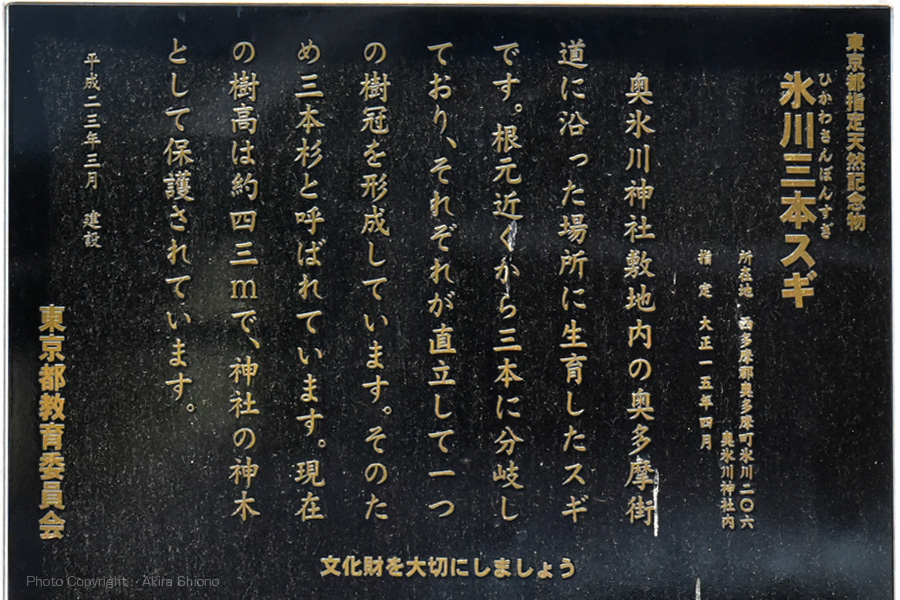 東京都指定天然記念物
ひかわさんぼんすぎ
氷川三本スギ
所在地 西多摩郡奥多摩町氷川二〇六
奥氷川神社内
指定 大正一五年四月
奥氷川神社敷地内の奥多摩街
道に沿った場所に生育したスギ
です。根元近くから三本に分岐し
ており、それぞれが直立して一つ
の樹冠を形成しています。そのた
め三本杉と呼ばれています。現在
の樹高は約四三mで、神社の神木
として保護されています。
平成二三年三月 建設
東京都教育委員会
文化財を大切にしましょう
Photo Copyright : Akira Shiono